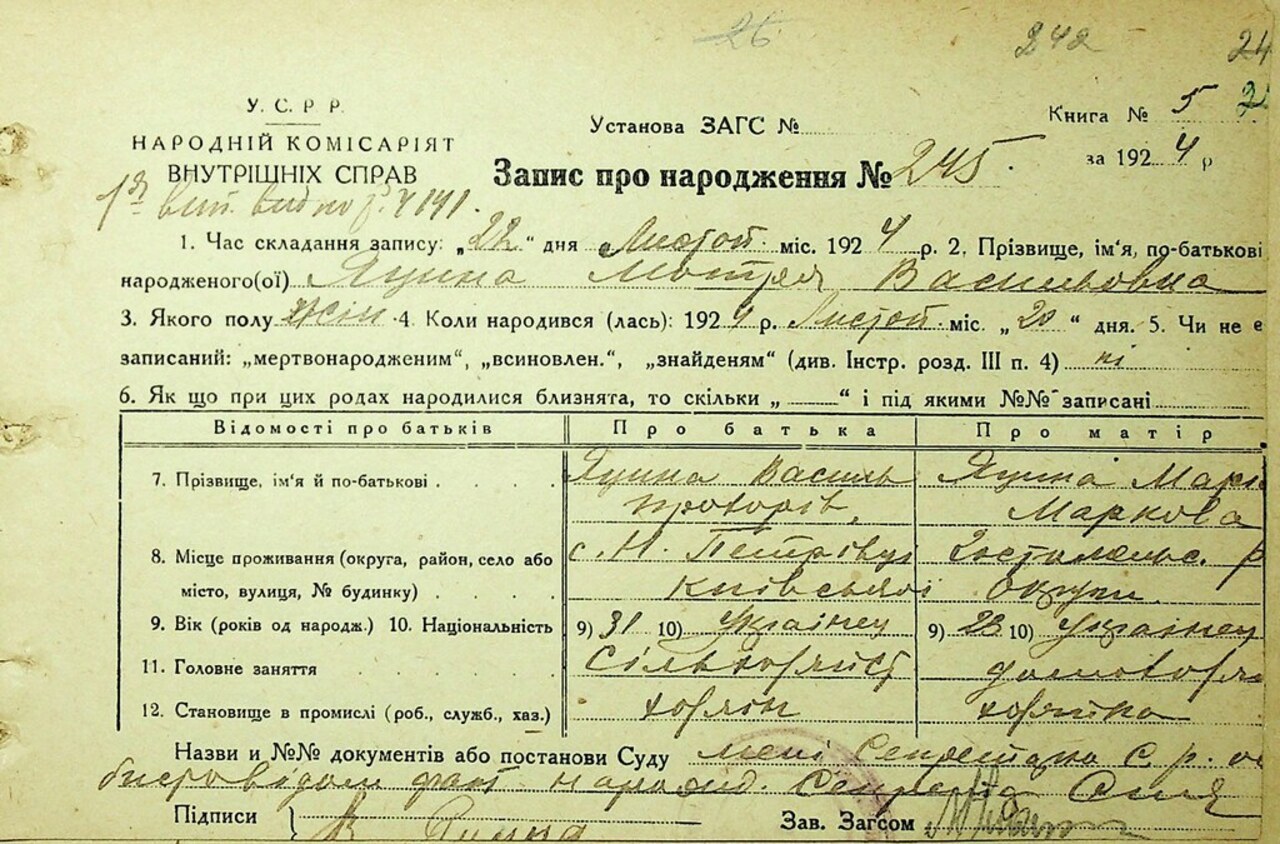 26 242 24
У. С. Р. Р.
НАРОДНІЙ КОМІСАРІЯТ
ВНУТРІШНІХ СПРАВ
Установа ЗАГС №
Книга № 5
за 1924 р
Запис про народження № 245.
1. Час складання запису: „22“ дня Листоп. міс. 1924 р. 2. Прізвище, ім'я, по-батькові
народженого(ої) Яцина Мотря Васильовна
3. Якого полу жін. 4. Коли народився (лась): 1924 р. Листоп. міс. „20“ дня. 5. Чи не є
записаний: „мертвонародженим“, „всиновлен.“, „знайденям“ (див. Інстр. розд. III п. 4) ні
6. Як що при цих родах народилися близнята, то скільки „ “ і під якими №№ записані
Відомості про батьків Про батька Про матір
7. Прізвище, ім'я й по-батькові Яцина Василь Яцина Марі
Прохорів, Маркова
8. Місце проживання (округа, район, село або с. Н. Петрівці Гостомельс. р
місто, вулиця, № будинку) Київської округи
9. Вік (років од народж.) 10. Національність 9) 31 10) Українец 9) 28 10) Українец
11. Головне заняття
12. Становище в промислі (роб., служб., хаз.)
Назви и №№ документів або постанови Суду мені Секретарю С. р.
факт народ.
Підписи Зав. Загсом